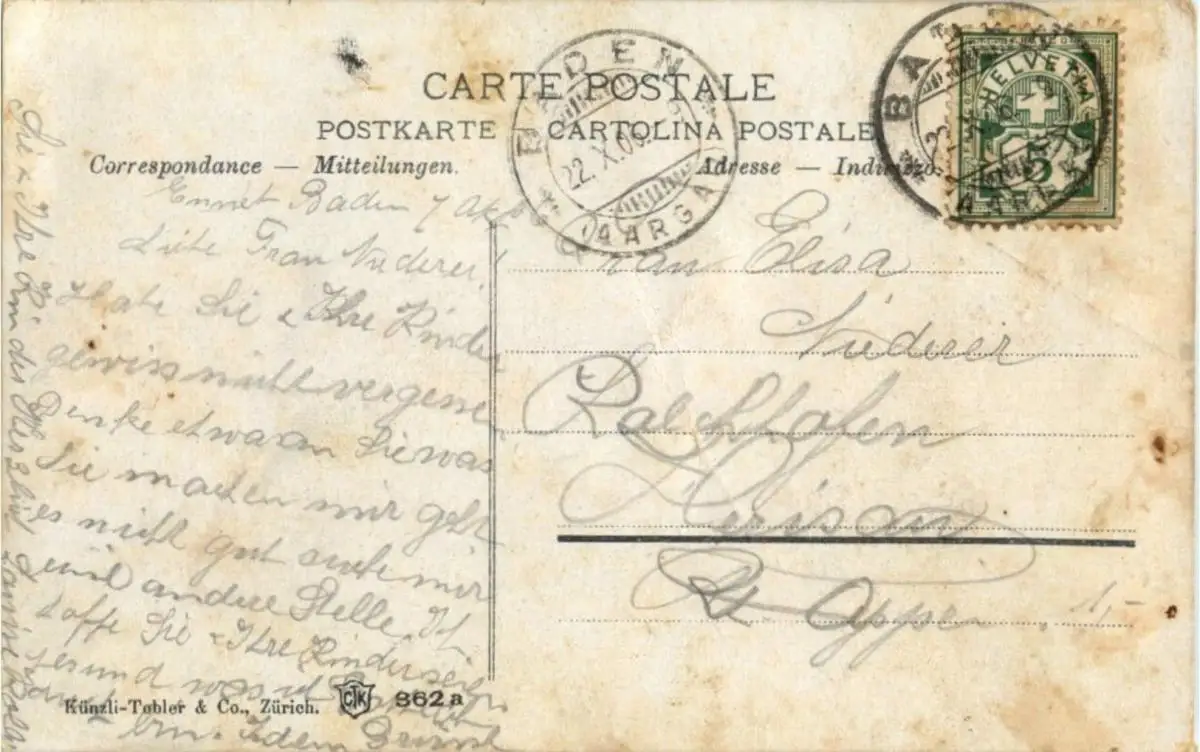 CARTE POSTALE
POSTKARTE — CARTOLINA POSTALE
Correspondance — Mitteilungen.
Adresse — Indirizzo.
BADEN
22.X.09
(AARGAU)
BADEN
22
HELVETIA
5
Ennet Baden
Liebe Frau Niederer!
Habe Sie & Ihre Kinder
gewiss nicht vergessen
Denke etwa an Sie was
Sie machen mir geht
es nicht gut suche mir
andere Stelle
hoffe Sie & Ihre Kinder seien
gesund was ich
bin. Indem
Sie & Ihre
Frau Elisa
Niederer
Herisau
Kt Appen.
1,-
Künzli-Tobler & Co., Zürich.
CTK
362 a